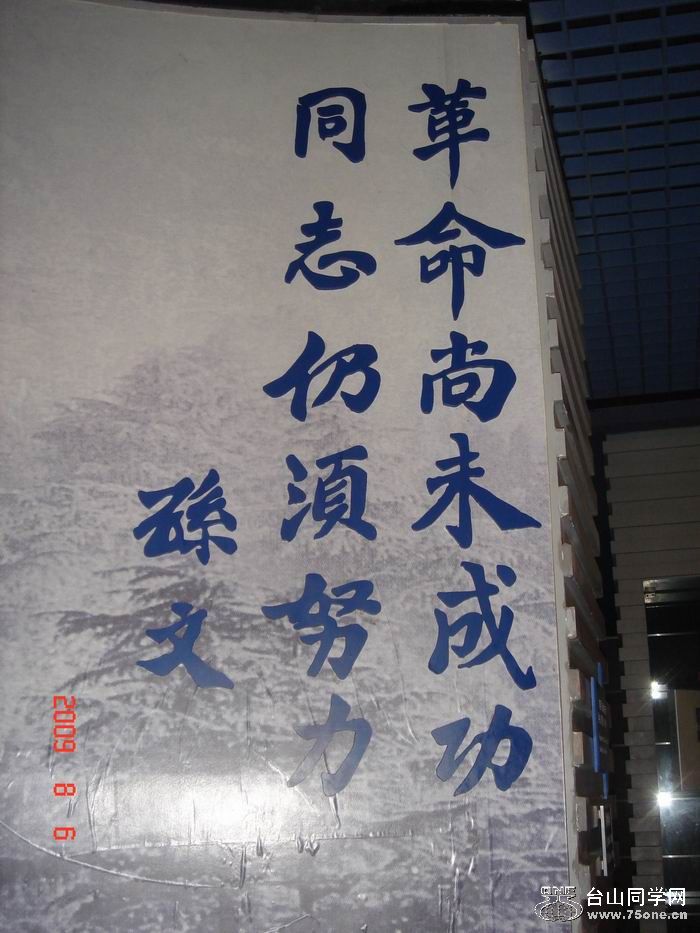 革命尚未成功
同志仍須努力
孫文
2009 8 6
ONE
台山同学网
www.75one.com